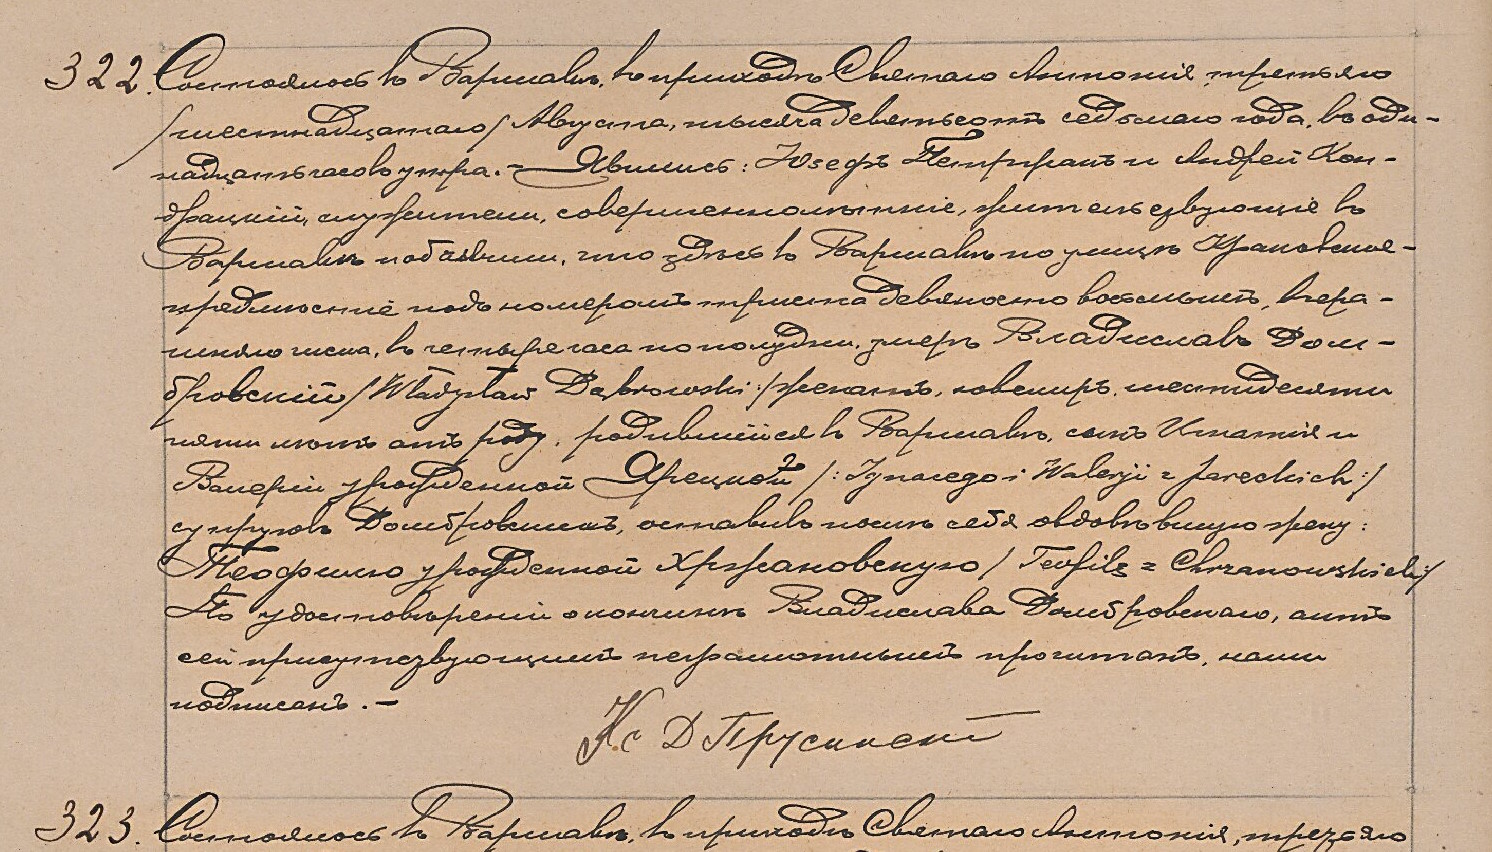 322. Состоялось въ Варшавѣ, въ приходѣ Святаго Антонія, третьяго
/шестнадцатаго/ Августа, тысяча девятьсотъ седьмаго года, въ оди-
надцать часовъ утра. – Явились: Юзефъ и Андрей Кон-
драцкій, служители, совершеннолѣтніе, жительствующіе въ
Варшавѣ и объявили, что здѣсь въ Варшавѣ по улицѣ Краковское-
предмѣстіе подъ номеромъ триста девяносто восемьмъ, вчера-
шняго числа, въ четыре часа по полудни, умеръ Владиславъ Дом-
бровскій /Władysław Dąbrowski:/ женатъ, ювелиръ, шестидесяти
пяти лѣтъ отъ роду, родившійся въ Варшавѣ, сынъ Игнатія и
Валеріи урожденной Ярецкой /:Ignacego i Walerji z Jareckich:/
супруговъ Домбровскихъ, оставивъ послѣ себя овдовѣвшую жену:
Теофилю урожденной Хржановскую /Teofilę z Chrzanowskich:/
По удостовѣреніи о кончинѣ Владислава Домбровскаго, актъ
сей присутствующимъ неграмотнымъ прочитанъ, нами
подписанъ. –
Кс Д Прусинскій
323. Состоялось въ Варшавѣ, въ приходѣ Святаго Антонія, третьяго